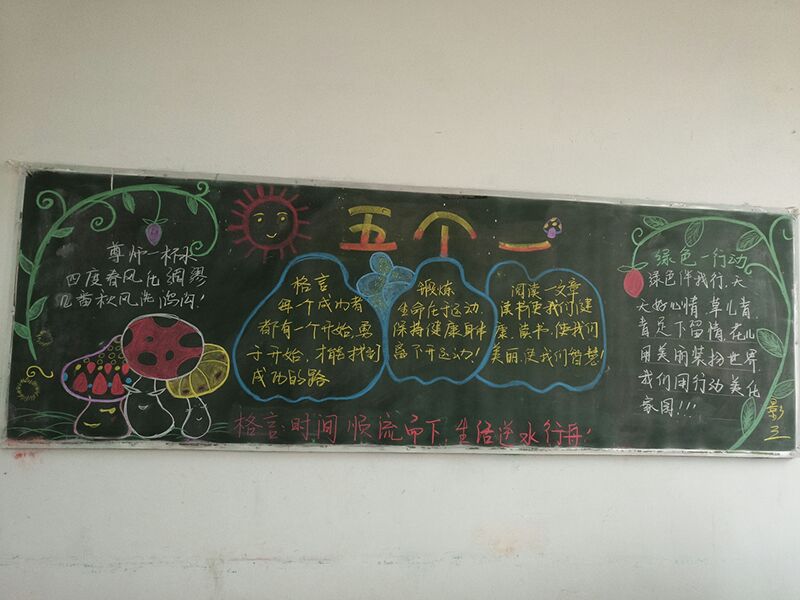 五个一
尊师一杯水
四度春风化绸缪
几番秋风洗鸿沟！
格言
每一个成功者
都有一个开始，勇
于开始，才能找到
成功的路
锻炼
生命在于运动，
保持健康身体
离不开运动！
阅读一文章
读书使我们健
康，读书，使我们
美丽，使我们智慧！
绿色一行动
绿色伴我行，天
天好心情，草儿青
青足下留情，花儿
用美丽装扮世界，
我们用行动美化
家园！！！
格言：时间顺流而下，生活逆水行舟！
影三